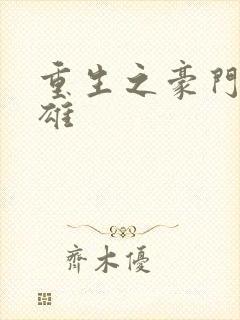 重生之豪門
雄
齊木優